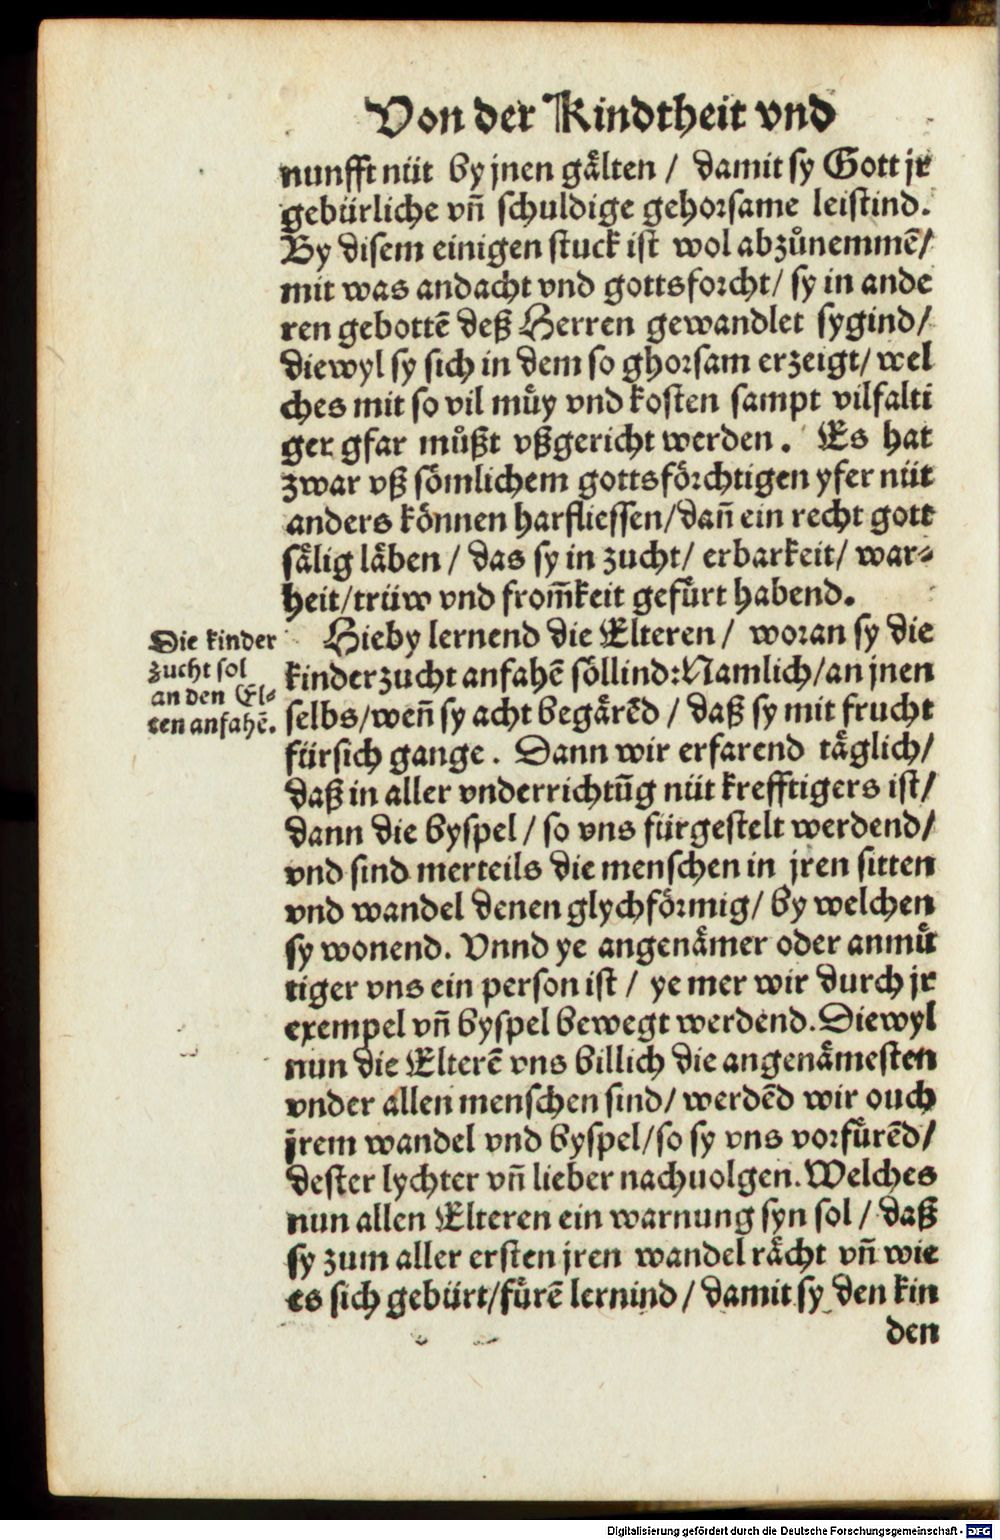 Von der Kindtheit vnd
nunfft nüt by jnen gålten / damit sy Gott jr
gebürliche vñ schuldige gehorsame leistind.
By disem einigen stuck ist wol abzůnemmē/
mit was andacht vnd gottsforcht/ sy in ande
ren gebottē deß Herren gewandlet sygind/
diewyl sy sich in dem so ghorsam erzeigt/ wel
ches mit so vil muͤy vnd kosten sampt vilfalti
ger gfar muͤßt vßgericht werden. Es hat
zwar vß soͤmlichem gottsfoͤrchtigen yfer nüt
anders koͤnnen harfliessen/dañ ein recht gott
saͤlig laͤben / das sy in zucht/ erbarkeit/ war⸗
heit/trüw vnd from̃keit gefuͤrt habend.
Hieby lernend die Elteren / woran sy die
kinderzucht anfahē soͤllind:Namlich/an jnen
selbs/weñ sy acht begaͤrēd / daß sy mit frucht
fürsich gange. Dann wir erfarend taͤglich/
daß in aller vnderrichtũg nüt krefftigers ist/
dann die byspel / so vns fürgestelt werdend/
vnd sind merteils die menschen in jren sitten
vnd wandel denen glychfoͤrmig/ by welchen
sy wonend. Vnnd ye angenaͤmer oder anmuͤt
tiger vns ein person ist / ye mer wir durch jr
exempel vñ byspel bewegt werdend. Diewyl
nun die Elterē vns billich die angenaͤmesten
vnder allen menschen sind/ werdēd wir ouch
jrem wandel vnd byspel/so sy vns vorfuͤrēd/
dester lychter vñ lieber nachuolgen. Welches
nun allen Elteren ein warnung syn sol / daß
sy zum aller ersten jren wandel raͤcht vñ wie
es sich gebürt/fuͤrē lernind / damit sy den kin
den
Die kinder
zucht sol
an den El⸗
teren anfahē.
Digitalisierung gefördert durch die Deutsche Forschungsgemeinschaft - DFG